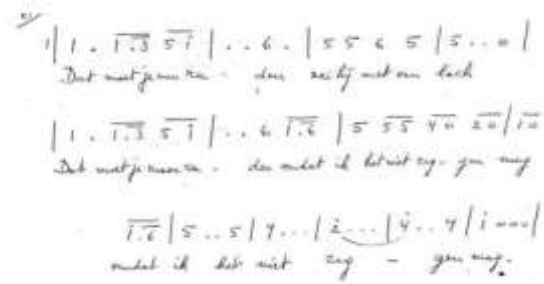 1 | 1 . 1.3 5 i | . . 6 . | 5 5 6 5 | 5 . . 0 |
Dat moet je - den zei hij met een lach
| 1 . 1.3 5 i | . . 6 i.6 | 5 5 5 4 0 2 0 | 1 0
Dat moet je - den omdat ik het niet zeg - gen mag
i.6 | 5 . . 5 | 4 . . . | 2 . . . | 4 . . 4 | i 0 0 0 |
omdat ik het niet zeg - gen mag.